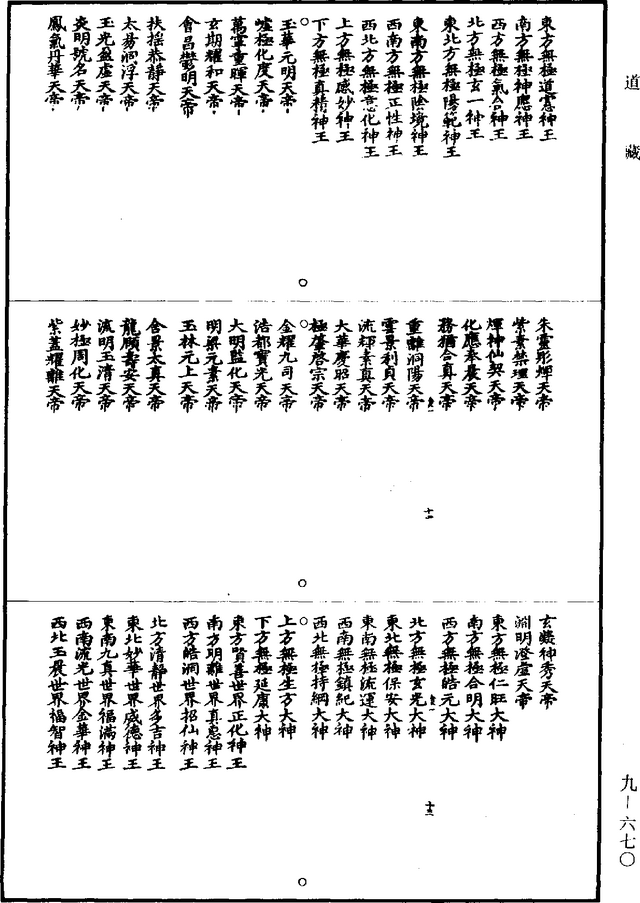 道藏
東方無極道寶神王
南方無極神應神王
西方無極氣合神王
北方無極玄一神王
東北方無極陽範神王
東南方無極陰境神王
西南方無極正性神王
西北方無極意化神王
上方無極感妙神王
下方無極真精神王
玉華元明天帝
極化度天帝
萬寧重暉天帝
玄期耀和天帝
會昌鬱明天帝
扶搖恭靜天帝
太昜洞浮天帝
玉光盈虛天帝
炎明號名天帝
鳳氣丹華天帝
朱靈彤煇天帝
紫素禁理天帝
煇神仙契天帝
化應奉晨天帝
務猶合真天帝
重離洞陽天帝
雲景利貞天帝
流輝素真天帝
大華慶昭天帝
極肇啓宗天帝
金耀九司天帝
浩都寶光天帝
大明監化天帝
明梁元素天帝
玉林元上天帝
含景太真天帝
龍願壽安天帝
流明玉清天帝
妙極周化天帝
紫蓋耀離天帝
十一
玄嶷神秀天帝
淵明澄虛天帝
東方無極仁旺大神
南方無極合明大神
西方無極皓元大神
北方無極玄光大神
東北無極保安大神
東南無極流運大神
西南無極鎮紀大神
西北無極持綱大神
上方無極生方大神
下方無極延康大神
東方賢善世界正化神王
南方明離世界真惠神王
西方皓洞世界招仙神王
北方清靜世界多吉神王
東北妙華世界威德神王
東南九真世界福滿神王
西南流光世界金華神王
西北玉晨世界福智神王
十二
九-六七〇